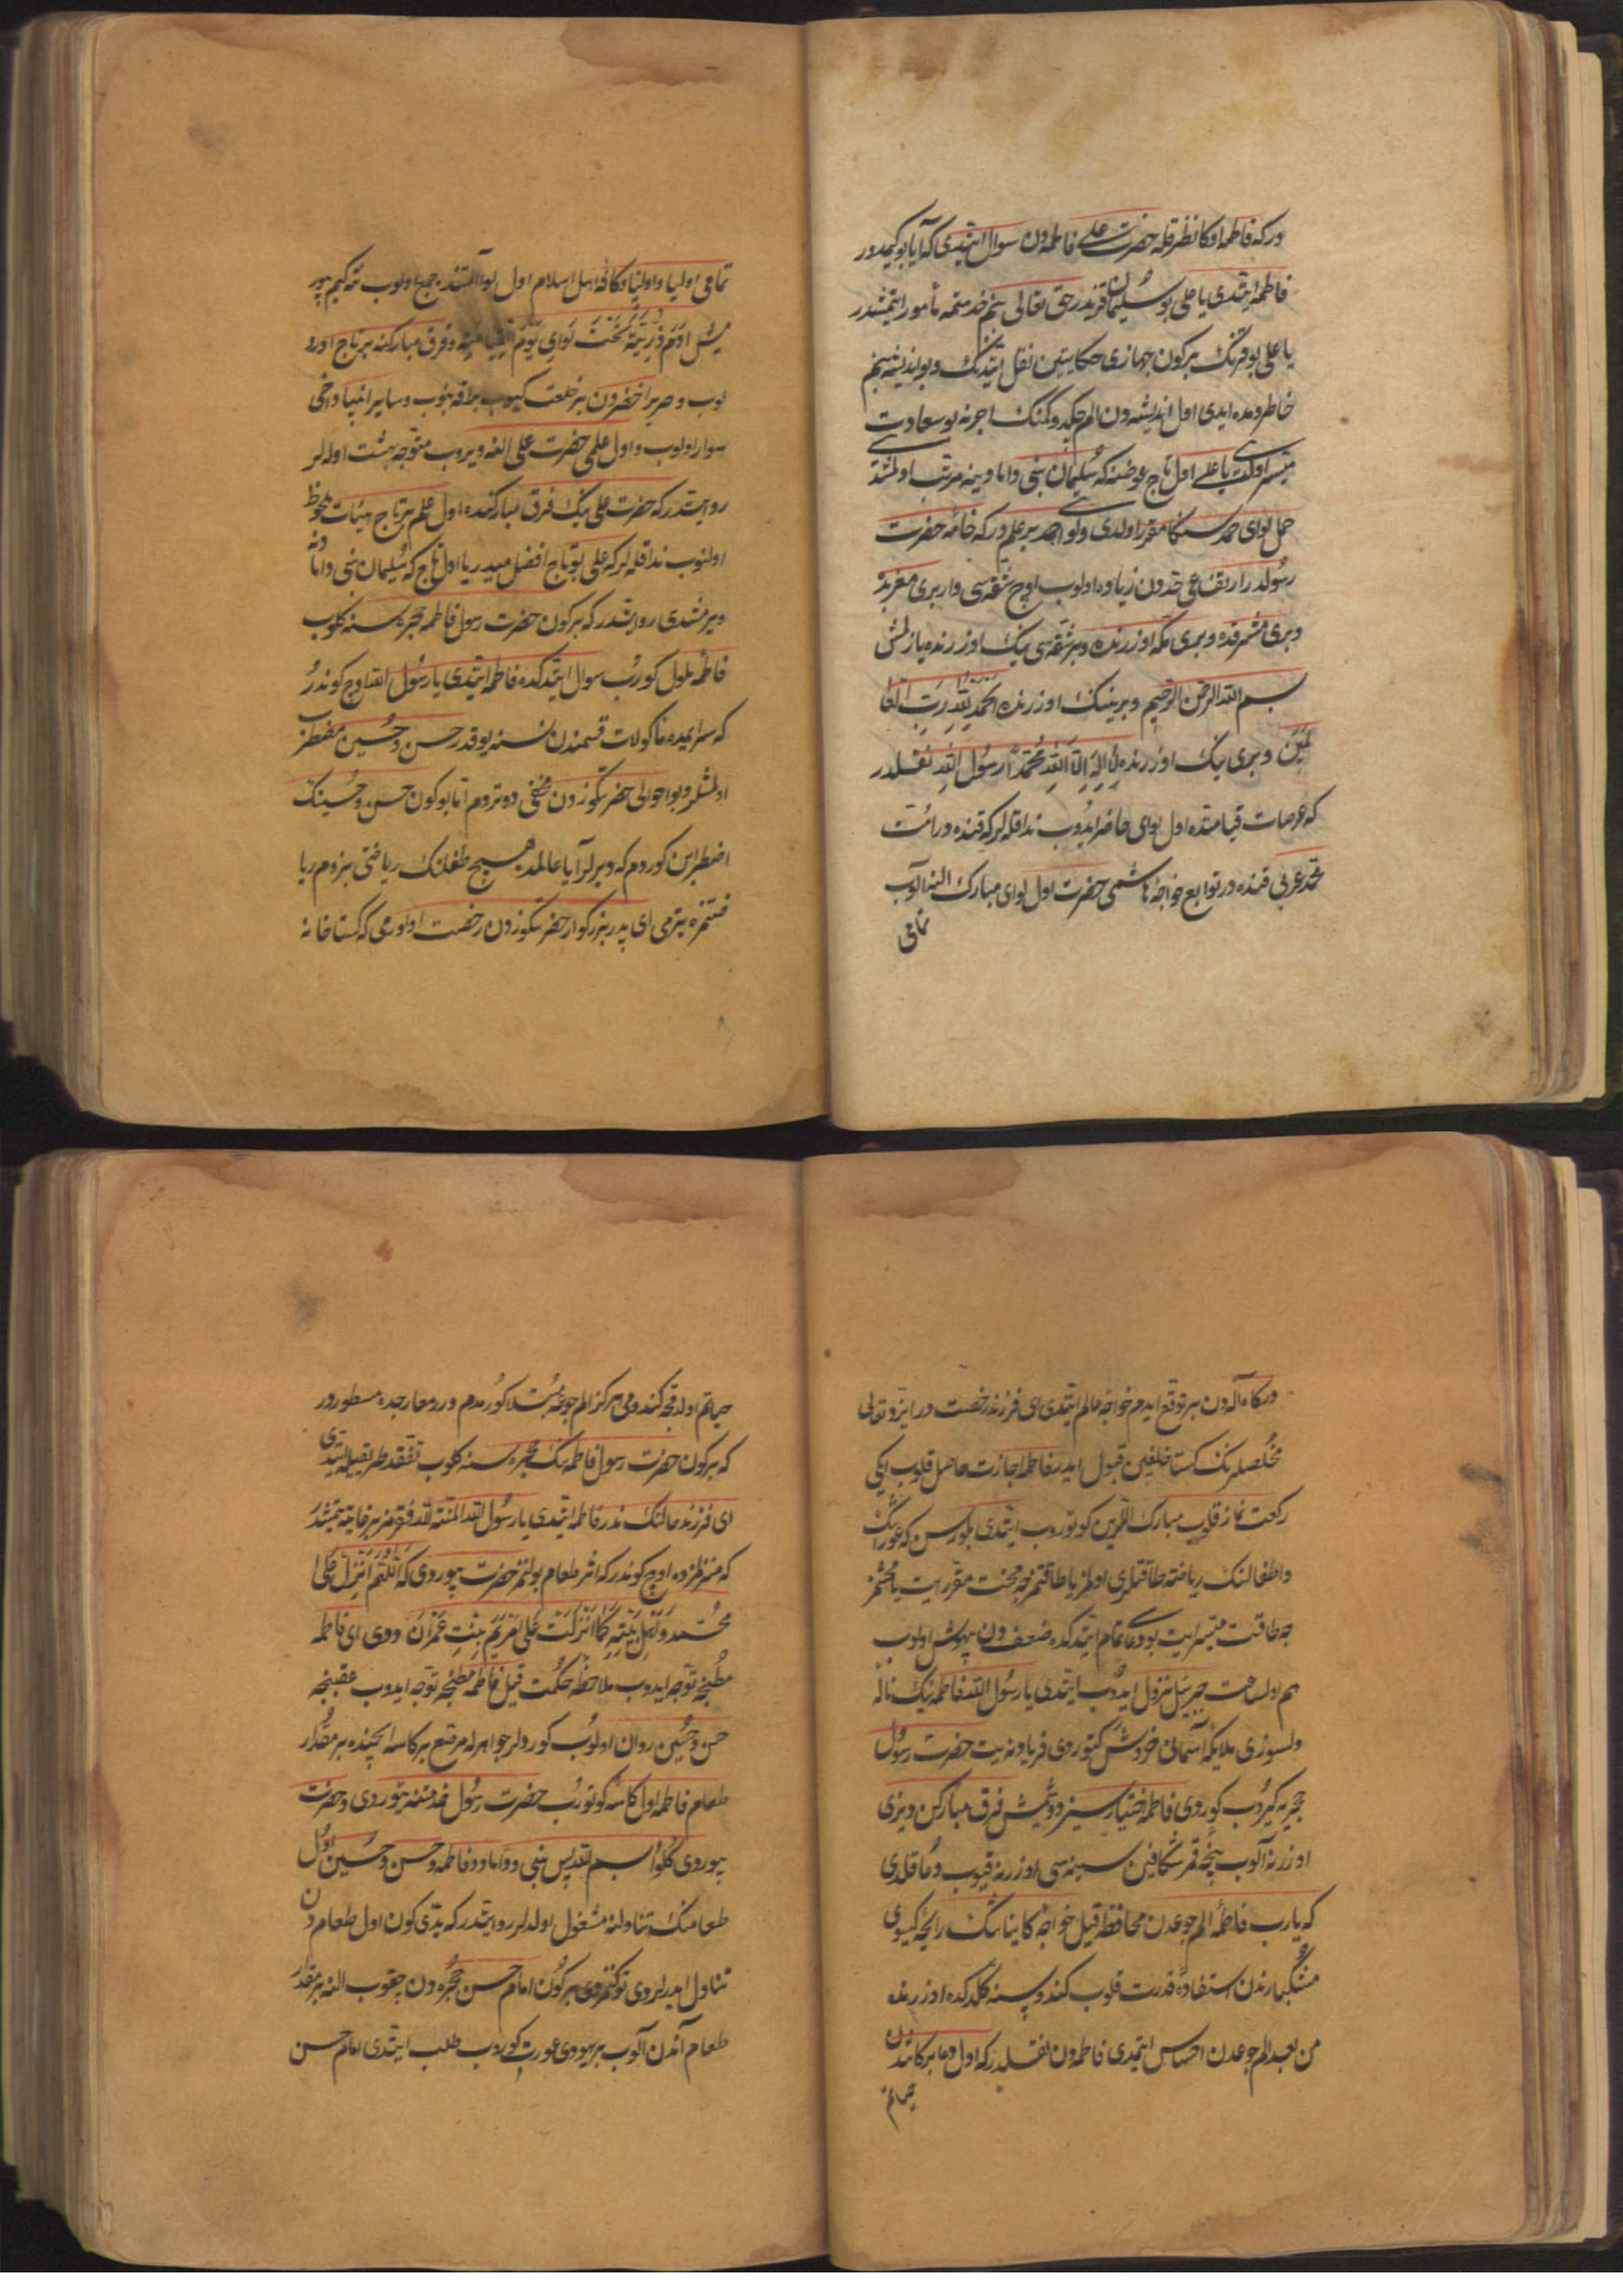 در که فاطمه اوکا نظر قله حضرت علی فاطمه‌دن سوال ایتدی که آیا بو کیمدور
فاطمه ایتدی یا علی بو سلیمان قزیدر حق تعالی بنم خدمتمه مأمور ایتمشدر
یا علی بو قزنک بر کون جهازی حکایتین نقل ایتدنک و بو اندیشه بنم
خاطرومده ایدی اول اندیشه‌دن الم چکدوکمنک اجرنه بو سعادت
میسر اولدی یا علی اول تاج عوضنه که سلیمان نبی دامادینه مرتب اولمشدی
حمل لوای حمد سنکا مقرر اولدی ولواء حمد بر علمدر که خاصه حضرت
رسولدر ارتفاعی حددن زیاده اولوب اوچ شقه‌سی وار بری مغربده
و بری مشرقده و بری مکه اوزرنده و بر شقه‌سی‌نک اوزرنده یازلمش
بسم الله الرحمن الرحیم و برینک اوزرنده الحمد لله رب العا
لمین و بری‌نک اوزرنده لا اله الا الله محمد رسول الله نقلدر
که عرصات قیامتده اول لوای حاضر ایدوب ندا قله‌لر که قنده در امت
محمد عربی قنده در توابع خواجهٔ هاشمی حضرت اول لوای مبارک النه آلوب
تمامی
تمامی اولیا و اولنیا و کافهٔ اهل اسلام اول لوا آلتنده جمع اولوب نته کیم بیور
مش آدم و ذریته تحت لوای یوم القیامة و فرق مبارکنه بر تاج اورو
لوب و حریر اخضردن بر خلعت کیوب براقه بنوب و سایر انبیا داخی
سوار اولوب و اول علمی حضرت علی النه ویروب متوجه بهشت اوله‌لر
روایتدر که حضرت علی‌نک فرق مبارکنده اول علم بر تاج هیئات ملحوظ
اولنوب ندا قله‌لر که علی بو تاج افضل میدر یا اول تاج که سلیمان نبی دامادنه
ویرمشدی روایتدر که بر کون حضرت رسول فاطمه حجره‌سنه کلوب
فاطمه ملول کورب سوال ایتدکده فاطمه ایتدی یا رسول الله اوچ کوندر
که سرایمده ماکولات قسمندن نسنه یوقدر حسن و حسین مضطرب
اولمشلر و بو احوالی حضرتکوزدن مخفی دوتردم اما بو کون حسن و حسینک
اضطرابن کوردم که دیرلر آیا عالمده هیچ طفلنک ریاضتی بزوم ریا
ضتمزه یترمی ای پدر بزرکوار حضرتکوزدن رخصت اولورمی که کستاخانه
درکاه الهدن بر توقع ایدم خواجهٔ عالم ایتدی ای فرزند رخصتدر ایزد تعالی
مخلصلرنک کستاخلغین قبول ایدر فاطمه اجازت حاصل قلوب ایکی
رکعت نماز قلوب مبارک اللرین کوتوروب ایتدی بلورسن که عوراتک
و اطفالنک ریاضته طاقتلری اولمز یا طاقتمزجه محنت مقرر ایت یا محنتمز
جه طاقت میسر ایت بو دعا تمام ایتدکده ضعفدن بیهوش اولوب
هم اول ساعت جبرئیل نزول ایدوب ایتدی یا رسول الله فاطمه‌نک نالهٔ
دلسوزی ملایکهٔ آسمانی خروشه کتوردی فریادنه یت حضرت رسول
حجریه کیروب کوردی فاطمه اختیارسز دوشمش فرق مبارکن دیزی
اوزرنه آلوب پنجهٔ قمر شکافین سینه‌سی اوزرنه قیوب دعا قلدی
که یارب فاطمه الم جوعدن محافظه قیل خواجهٔ کایناتنک رایحهٔ کیسوی
مشکبارندن استفادهٔ قدرت قلوب کندوسنه کلدکده اوزرنده
من بعد الم جوعدن احساس ایتمدی فاطمه‌دن نقلدر که اول دعا برکاتندن
حیاتم
حیاتم اولدقجه کندومی هرکز الم جوعه مبتلا کورمدم و در معارجده مسطوردر
که بر کون حضرت رسول فاطمه‌نک حجره‌سنه کلوب تفقد طریقیله ایتدی
ای فرزند حالنک ندر فاطمه ایتدی یا رسول الله المنة لله فقرمز بر غایته یتمشدر
که منزلمزده اوچ کوندر که اثر طعام بولنمز حضرت بیوردی که اللهم انزل علی
محمد و اهل بیته کما انزلت علی مریم بنت عمران ددی ای فاطمه
مطبخه توجه ایدوب ملاحظهٔ حکمت قیل فاطمه مطبخه توجه ایدوب عقبنجه
حسن و حسین روان اولوب کوردلر جواهرله مرصع بر کاسه ایچنده بر مقدار
طعام فاطمه اول کاسه کوتورب حضرت رسول خدمتنه یتوردی و حضرت
بیوردی کلوا بسم الله پس نبی و داماد و فاطمه و حسن و حسین اول
طعامنک تناولنه مشغول اولدلر روایتدر که یدی کون اول طعامدن
تناول ایدرلردی توکنمزدی بر کون امام حسن حجره‌دن چقوب النه بر مقدار
طعام آندن آلوب بر یهودی عورت کوروب طلب ایتدی امام حسن